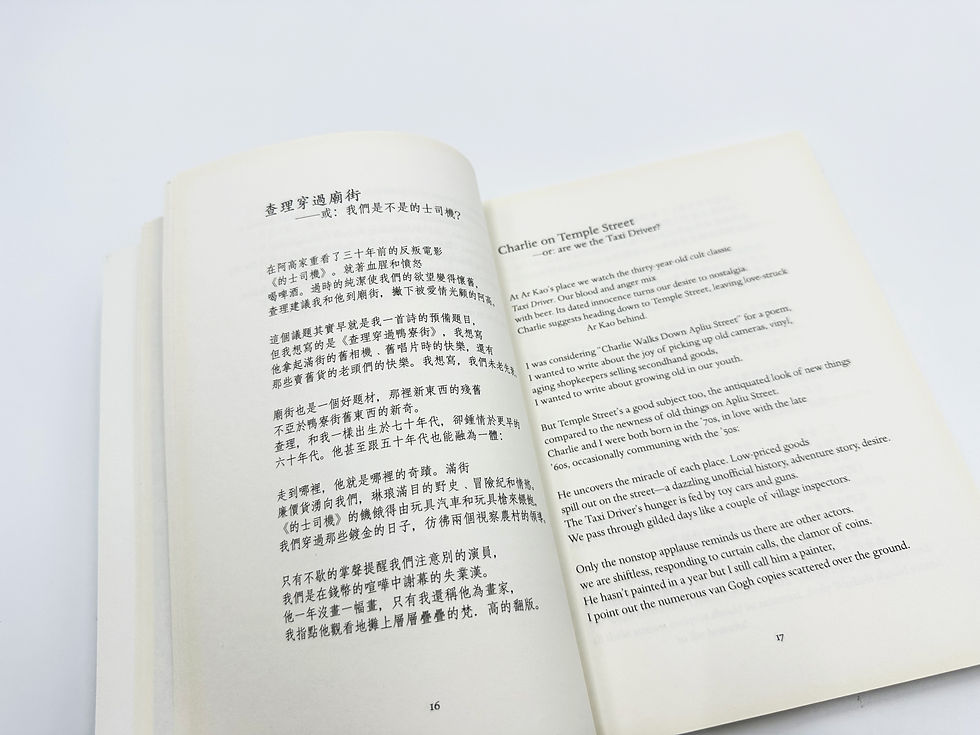 查理穿過廟街
——或：我們是不是的士司機？
在阿高家重看了三十年前的反叛電影
《的士司機》。就著血腥和憤怒
喝啤酒。過時的純潔使我們的欲望變得懷舊，
查理建議我和他到廟街，撇下被愛情光顧的阿高，
這個議題其實早就是我一首詩的預備題目，
但我想寫的是《查理穿過鴨寮街》，我想寫
他拿起滿街的舊相機、舊唱片時的快樂，還有
那些賣舊貨的老頭們的快樂。我想寫，我們未老先衰。
廟街也是一個好題材，那裡新東西的殘舊
不亞於鴨寮街舊東西的新奇。
查理，和我一樣出生於七十年代，卻鍾情於更早的
六十年代。他甚至跟五十年代也能融為一體：
走到哪裡，他就是哪裡的奇蹟。滿街
廉價貨湧向我們，琳琅滿目的野史、冒險紀和情慾。
《的士司機》的饑餓得由玩具汽車和玩具槍來餵飽，
我們穿過那些鍍金的日子，彷彿兩個視察農村的領導。
只有不歇的掌聲提醒我們注意別的演員，
我們是在錢幣的喧嘩中謝幕的失業漢。
他一年沒畫一幅畫，只有我還稱他為畫家，
我指點他觀看地攤上層層疊疊的梵．高的翻版。
16
Charlie on Temple Street
—or: are we the Taxi Driver?
At Ar Kao's place we watch the thirty-year-old cult classic
Taxi Driver. Our blood and anger mix
with beer. Its dated innocence turns our desire to nostalgia.
Charlie suggests heading down to Temple Street, leaving love-struck
Ar Kao behind.
I was considering "Charlie Walks Down Apliu Street" for a poem,
I wanted to write about the joy of picking up old cameras, vinyl,
aging shopkeepers selling secondhand goods,
I wanted to write about growing old in our youth.
But Temple Street's a good subject too, the antiquated look of new things
compared to the newness of old things on Apliu Street.
Charlie and I were both born in the '70s, in love with the late
'60s, occasionally communing with the '50s:
He uncovers the miracle of each place. Low-priced goods
spill out on the street—a dazzling unofficial history, adventure story, desire.
The Taxi Driver's hunger is fed by toy cars and guns.
We pass through gilded days like a couple of village inspectors.
Only the nonstop applause reminds us there are other actors.
we are shiftless, responding to curtain calls, the clamor of coins.
He hasn't painted in a year but I still call him a painter,
I point out the numerous van Gogh copies scattered over the ground.
17